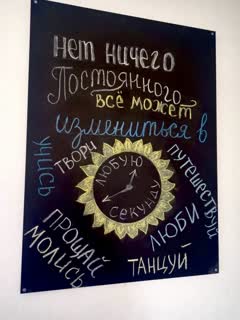 нет ничего
Постоянного
всё может
измениться в
любую
секунду
учись
твори
путешествуй
люби
прощай
молись
танцуй